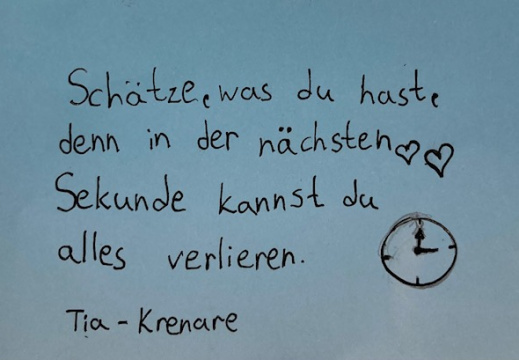 Schätze, was du hast,
denn in der nächsten
Sekunde kannst du
alles verlieren.
Tia - Krenare